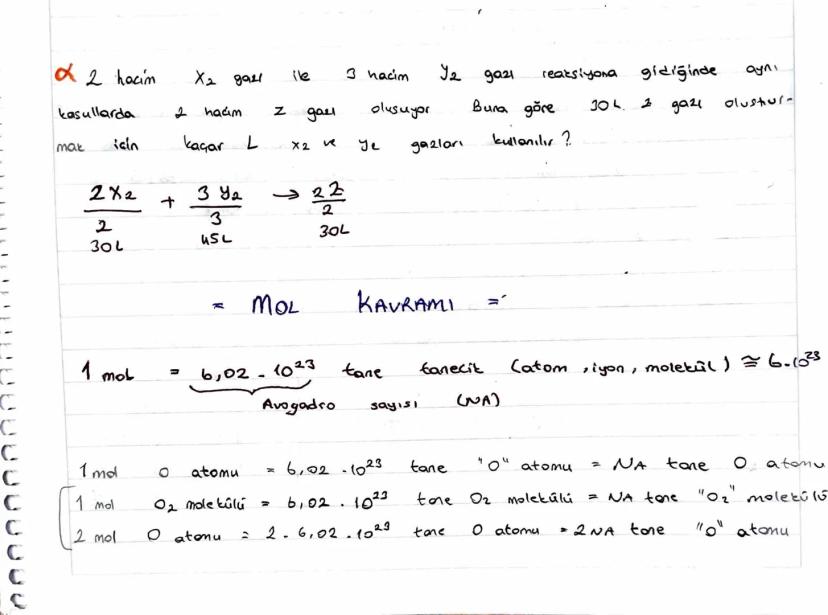 α 2 hacim X2 gazı ile 3 hacim Y2 gazı reaksiyona gidiğinde aynı
kosullarda 2 hacim Z gazı oluşuyor Buna göre 30 L. Z gazı oluştur-
mak için kaçar L X2 ve Y2 gazları kullanılır?
2X2 + 3Y2 → 2Z
2 3 2
30L 45L 30L
= MOL KAVRAMI =
1 mol = 6,02 . 10^23 tane tanecik (atom, iyon, molekül) ≅ 6.10^23
Avogadro sayısı (NA)
1 mol O atomu = 6,02 .10^23 tane "O" atomu = NA tane O atomu
1 mol O2 molekülü = 6,02 . 10^23 tane O2 molekülü = NA tane "O2" molekülü
2 mol O atomu = 2 . 6,02 .10^23 tane O atomu = 2NA tane "O" atomu